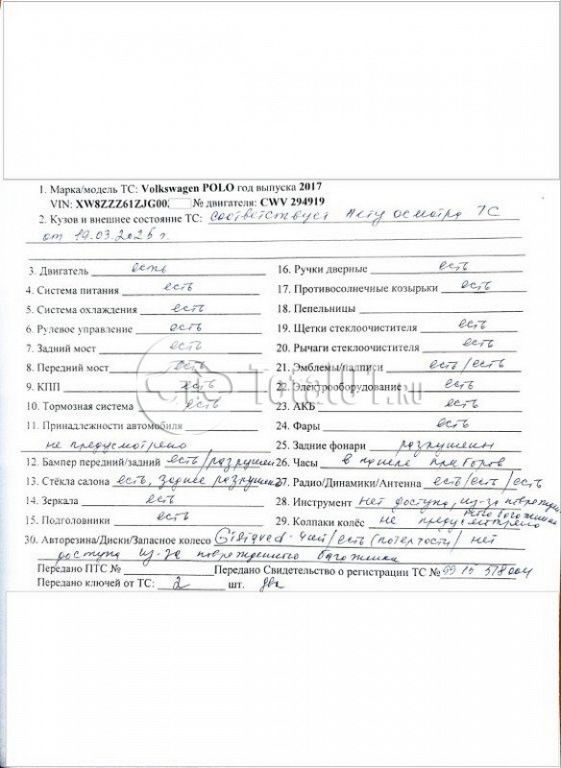 1. Марка/модель ТС: Volkswagen POLO год выпуска 2017
VIN: XW8ZZZ61ZJG00. № двигателя: CWV 294919
2. Кузов и внешнее состояние ТС: соответствует Акту осмотра ТС
от 19.03.2025 г.
3. Двигатель есть
4. Система питания есть
5. Система охлаждения есть
6. Рулевое управление есть
7. Задний мост есть
8. Передний мост есть
9. КПП есть
10. Тормозная система есть
11. Принадлежности автомобиля
не предусмотрено
12. Бампер передний/задний есть/разрушен
13. Стёкла салона есть, заднее разрушено
14. Зеркала есть
15. Подголовники есть
16. Ручки дверные есть
17. Противосолнечные козырьки есть
18. Пепельницы
19. Щетки стеклоочистителя есть
20. Рычаги стеклоочистителя есть
21. Эмблемы/надписи есть/есть
22. Электрооборудование есть
23. АКБ есть
24. Фары есть
25. Задние фонари разрушены
26. Часы в панели приборов
27. Радио/Динамики/Антенна есть/есть/есть
28. Инструмент нет доступа, из-за поврежден
ного багажника
29. Колпаки колёс не предусмотрено
30. Авторезина/Диски/Запасное колесо Gislaved - 4шт/есть (потертости)/нет
доступа из-за поврежденного багажника
Передано ПТС № Передано Свидетельство о регистрации ТС № 99 15 578004
Передано ключей от ТС: 2 шт. два
Total01.RU